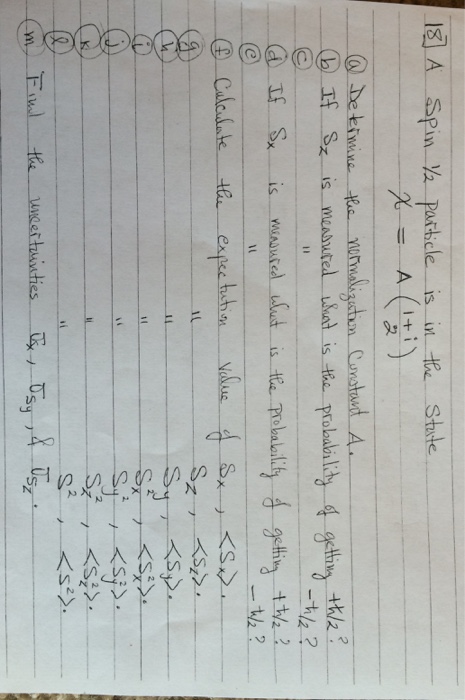 18] A Spin 1/2 particle is in the State
χ = A (1+i
2)
(a) Determine the normalization Constant A.
(b) If Sz is measured what is the probability of getting +ħ/2 ?
(c) " -ħ/2 ?
(d) If Sx is measured what is the probability of getting +ħ/2 ?
(e) " -ħ/2 ?
(f) Calculate the expectation value of Sx, <Sx>.
(g) " Sz, <Sz>.
(h) " Sy, <Sy>.
(i) " Sx², <Sx²>.
(j) " Sy², <Sy²>.
(k) " Sz², <Sz²>.
(l) " S², <S²>.
(m) Find the uncertainties σx, σsy, & σsz.